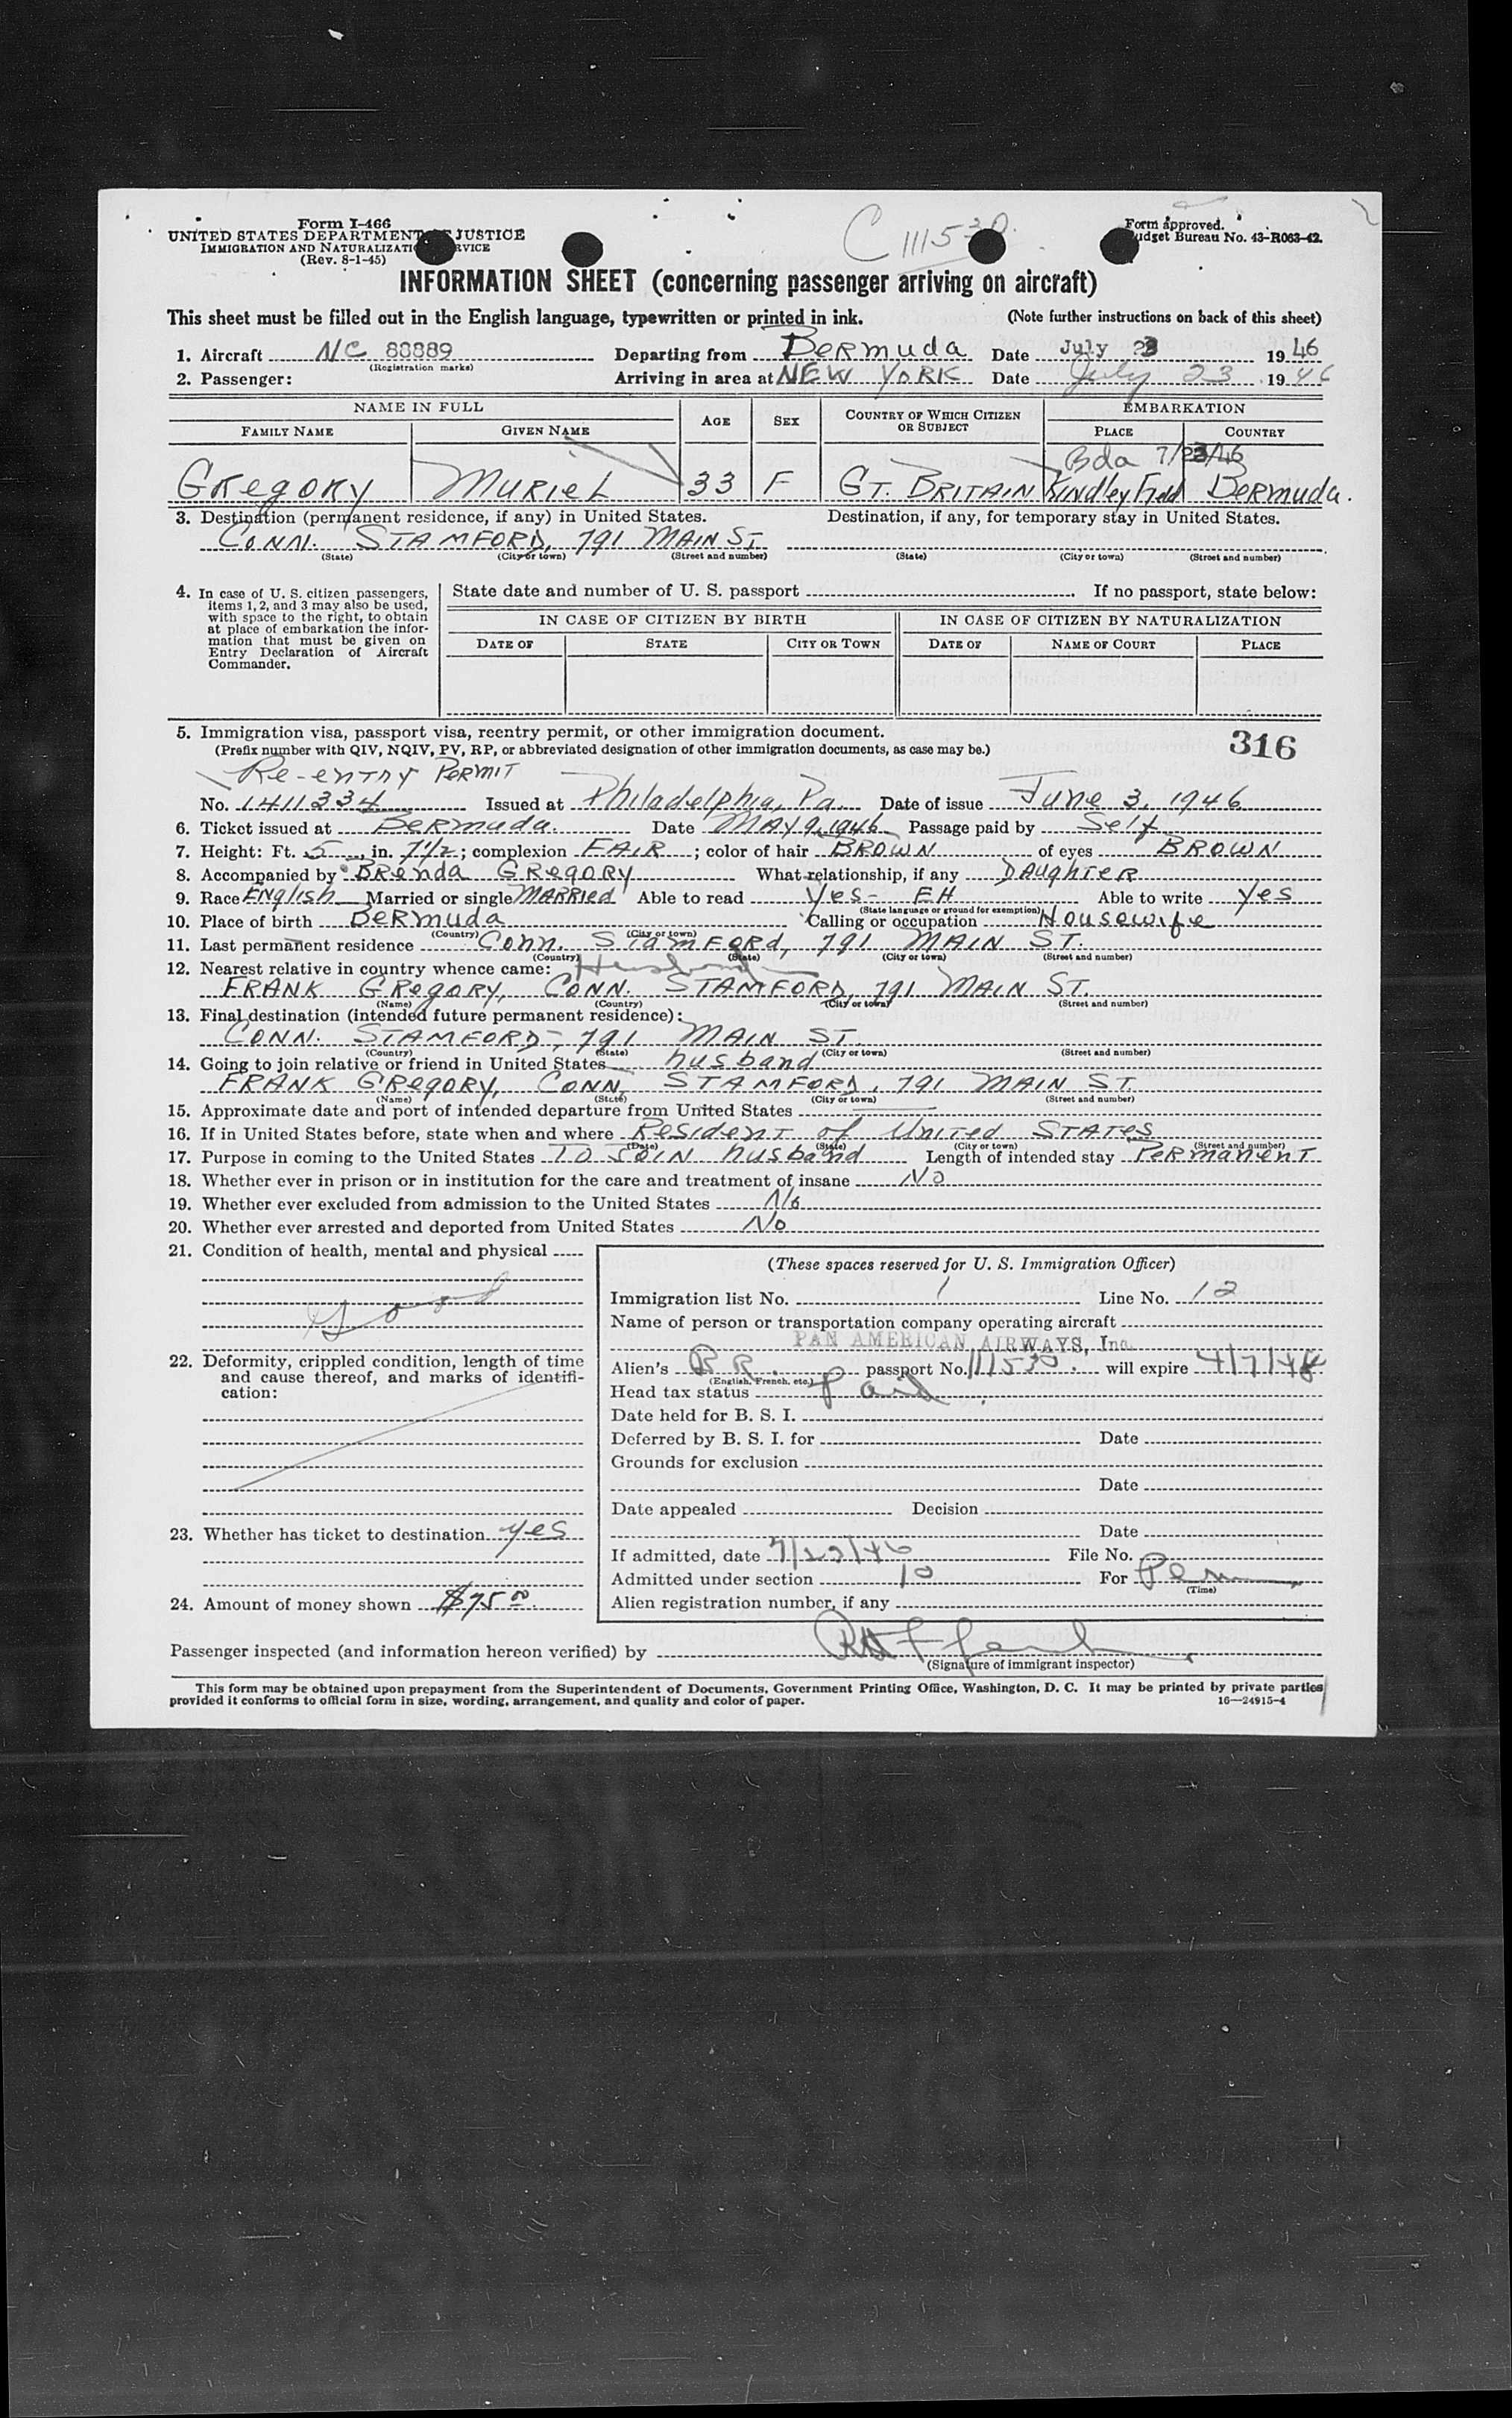 Form I-466
UNITED STATES DEPARTMENT JUSTICE
IMMIGRATION AND NATURALIZATION SERVICE
(Rev. 8-1-45)
C 111530
Form approved.
Budget Bureau No. 43-R063-42.
INFORMATION SHEET (concerning passenger arriving on aircraft)
This sheet must be filled out in the English language, typewritten or printed in ink. (Note further instructions on back of this sheet)
1. Aircraft NC 88889 Departing from Bermuda Date July 23 1946
(Registration marks)
2. Passenger: Arriving in area at NEW YORK Date July 23 1946
NAME IN FULL AGE SEX COUNTRY OF WHICH CITIZEN OR SUBJECT EMBARKATION
FAMILY NAME GIVEN NAME PLACE COUNTRY
Bda 7/23/46
Gregory Muriel 33 F GT. BRITAIN Kindley Field Bermuda.
3. Destination (permanent residence, if any) in United States. Destination, if any, for temporary stay in United States.
CONN. STAMFORD, 791 MAIN ST
(State) (City or town) (Street and number) (State) (City or town) (Street and number)
4. In case of U. S. citizen passengers, items 1, 2, and 3 may also be used, with space to the right, to obtain at place of embarkation the information that must be given on Entry Declaration of Aircraft Commander.
State date and number of U. S. passport If no passport, state below:
IN CASE OF CITIZEN BY BIRTH IN CASE OF CITIZEN BY NATURALIZATION
DATE OF STATE CITY OR TOWN DATE OF NAME OF COURT PLACE
5. Immigration visa, passport visa, reentry permit, or other immigration document.
(Prefix number with QIV, NQIV, PV, RP, or abbreviated designation of other immigration documents, as case may be.)
316
Re-entry Permit
No. 1411334 Issued at Philadelphia, Pa. Date of issue June 3, 1946
6. Ticket issued at Bermuda. Date MAY 9, 1946 Passage paid by Self
7. Height: Ft. 5 in. 7 1/2; complexion FAIR; color of hair BROWN of eyes BROWN
8. Accompanied by Brenda GREGORY What relationship, if any DAUGHTER
9. Race English Married or single MARRIED Able to read Yes- EH Able to write yes
(State language or ground for exemption)
10. Place of birth Bermuda Calling or occupation Housewife
(Country) (City or town)
11. Last permanent residence Conn. Stamford, 791 MAIN ST.
(Country) (State) (City or town) (Street and number)
12. Nearest relative in country whence came: Husband
FRANK GREGORY, CONN. STAMFORD, 791 MAIN ST.
(Name) (Country) (City or town) (Street and number)
13. Final destination (intended future permanent residence):
CONN. STAMFORD, 791 MAIN ST.
(Country) (State) (City or town) (Street and number)
14. Going to join relative or friend in United States husband
FRANK GREGORY, CONN, STAMFORD, 791 MAIN ST.
(Name) (State) (City or town) (Street and number)
15. Approximate date and port of intended departure from United States
16. If in United States before, state when and where Resident of United STATES
(Date) (State) (City or town) (Street and number)
17. Purpose in coming to the United States TO JOIN husband Length of intended stay PERMANENT
18. Whether ever in prison or in institution for the care and treatment of insane No
19. Whether ever excluded from admission to the United States No
20. Whether ever arrested and deported from United States No
21. Condition of health, mental and physical
good
22. Deformity, crippled condition, length of time and cause thereof, and marks of identification:
23. Whether has ticket to destination yes
24. Amount of money shown $75 00
(These spaces reserved for U. S. Immigration Officer)
Immigration list No. 1 Line No. 12
Name of person or transportation company operating aircraft
PAN AMERICAN AIRWAYS, Inc.
Alien's passport No. 111530. will expire 4/7/48
(English, French, etc.)
Head tax status Paid
Date held for B. S. I.
Deferred by B. S. I. for Date
Grounds for exclusion
Date
Date appealed Decision
Date
If admitted, date 7/23/46 File No.
Admitted under section 10 For Perm
(Time)
Alien registration number, if any
Passenger inspected (and information hereon verified) by
(Signature of immigrant inspector)
This form may be obtained upon prepayment from the Superintendent of Documents, Government Printing Office, Washington, D. C. It may be printed by private parties
provided it conforms to official form in size, wording, arrangement, and quality and color of paper. 16—24915-4